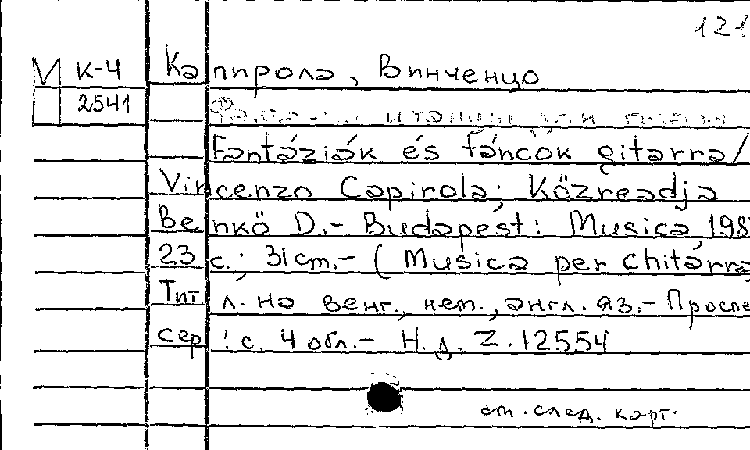 121
И К-4 Капирола, Винченцо
2541
Fantáziák és táncok gitárra/
Vincenzo Capirola; Közreadja
Benkö D.- Budapest: Musica, 198
23 с.; 31cm.- (Musica per chitarra
Тит л. на венг., нем., англ. яз.-
сер с. 4 обл.- Н.д. Z.12554
см. след. карт.